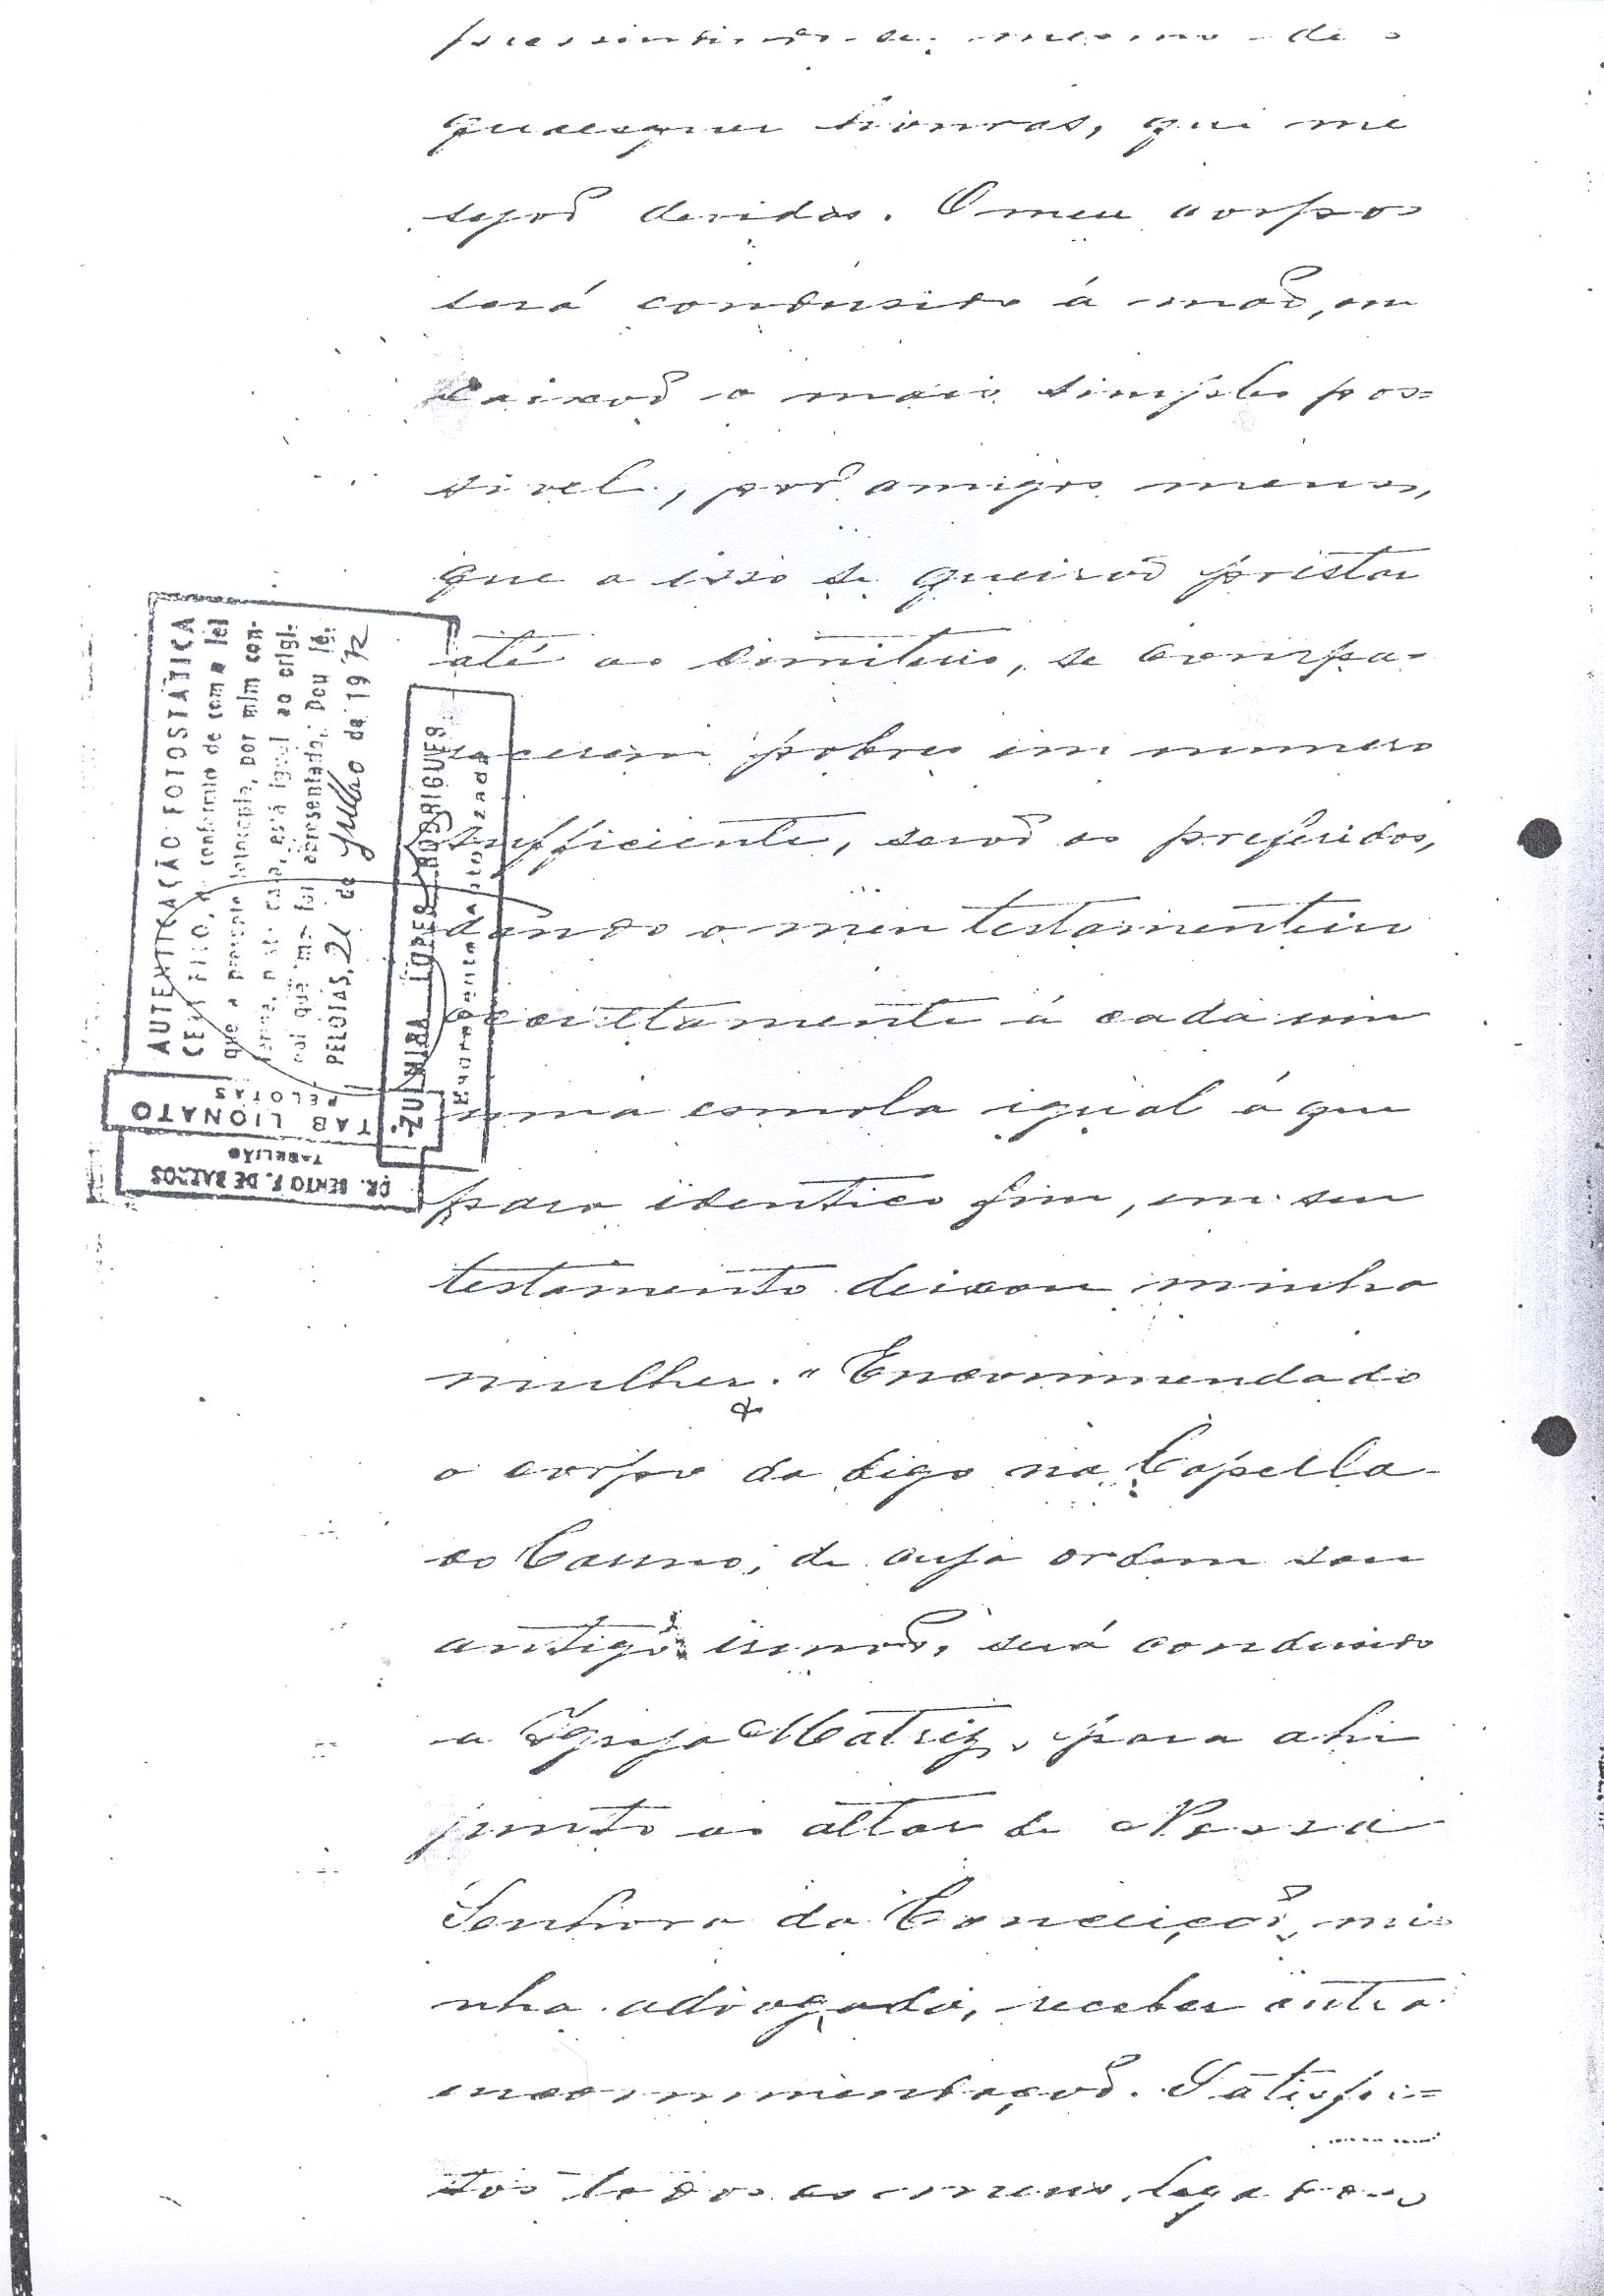 prescindindo-se mesmo de
quaesquer honras, que me
sejaõ devidas. O meu corpo
será condusido á maõ, em
caixaõ o mais simples pos=
sivel, por amigos meus,
que a isso se queiraõ prestar
até ao cimiterio, se compa-
recerem pobres em numero
sufficiente, seraõ os preferidos,
dando o meu testamenteiro
occultamente á cada um
uma esmola igual á que
para identico fim, em seu
testamento deixou minha
mulher. " Encommendado
o corpo da digo na Capella
do Carmo, de cuja ordem sou
antigo irmaõ, será condusido
a Igreja Matriz, para ahi
junto ao altar de Nossa
Senhora da Conceiçaõ, mi=
nha advogada, receber outra
encommendaçaõ. Satisfei=
tos todos os meus legados
AUTENTICAÇÃO FOTOSTÁTICA
CERTIFICO, de conformidade com a lei
que a presente fotocopia, por mim con-
nal que me foi apresentado. Dou fé.
PELOTAS, 21 de Julho de 1972
ZULMIRA LOPES RODRIGUES
TABELIONATO
PELOTAS
DR. BENTO F. DE BARROS
TABELIÃO